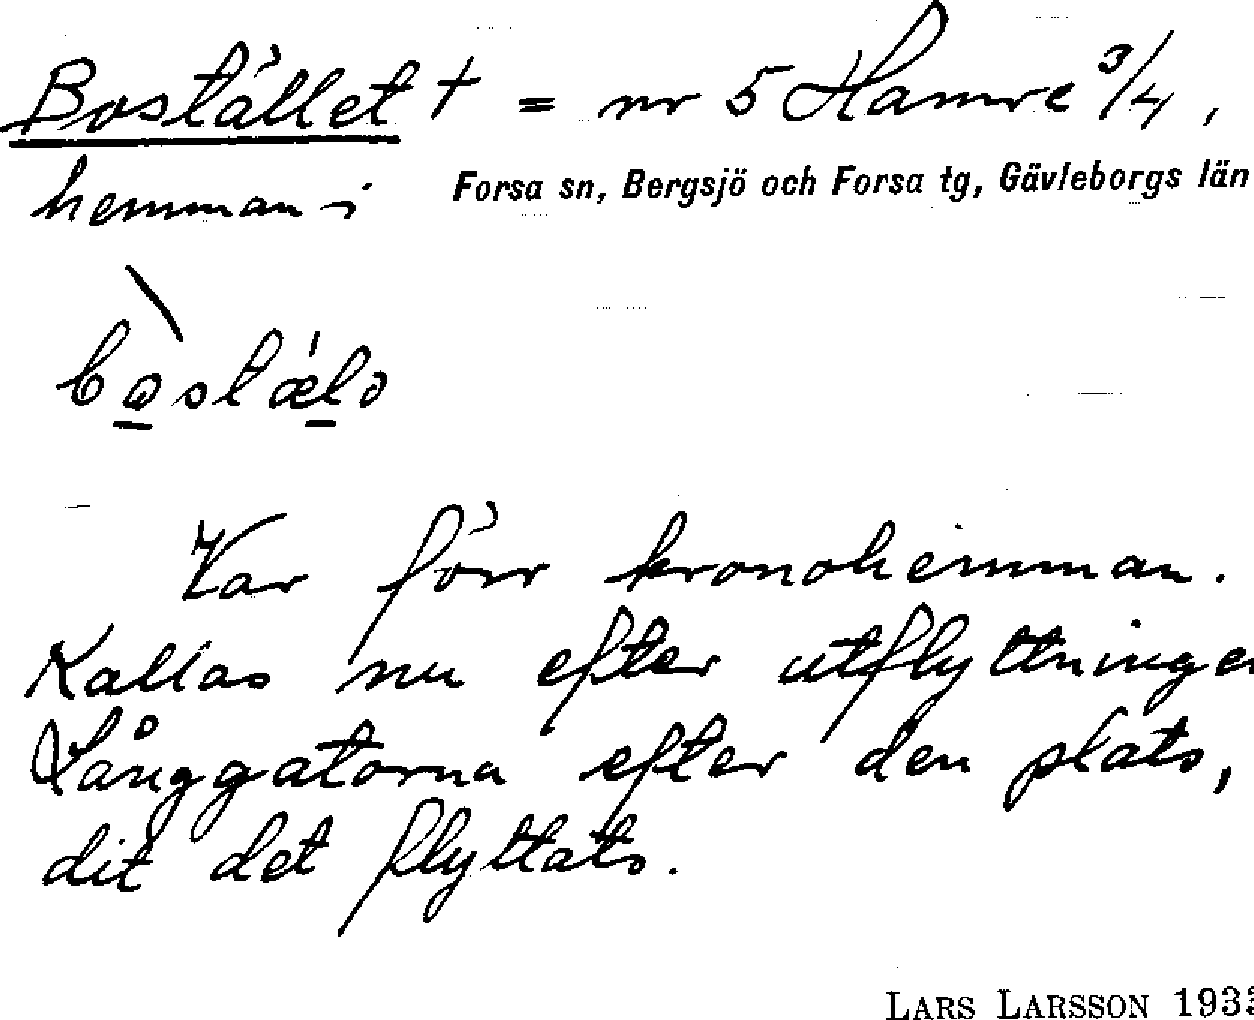 Bostället † = nr 5 Hamre 3/4,
hemman i Forsa sn, Bergsjö och Forsa tg, Gävleborgs län
Var förr kronohemman.
Kallas nu efter utflyttningen
Långgatorna efter den plats,
dit det flyttats.
LARS LARSSON 193